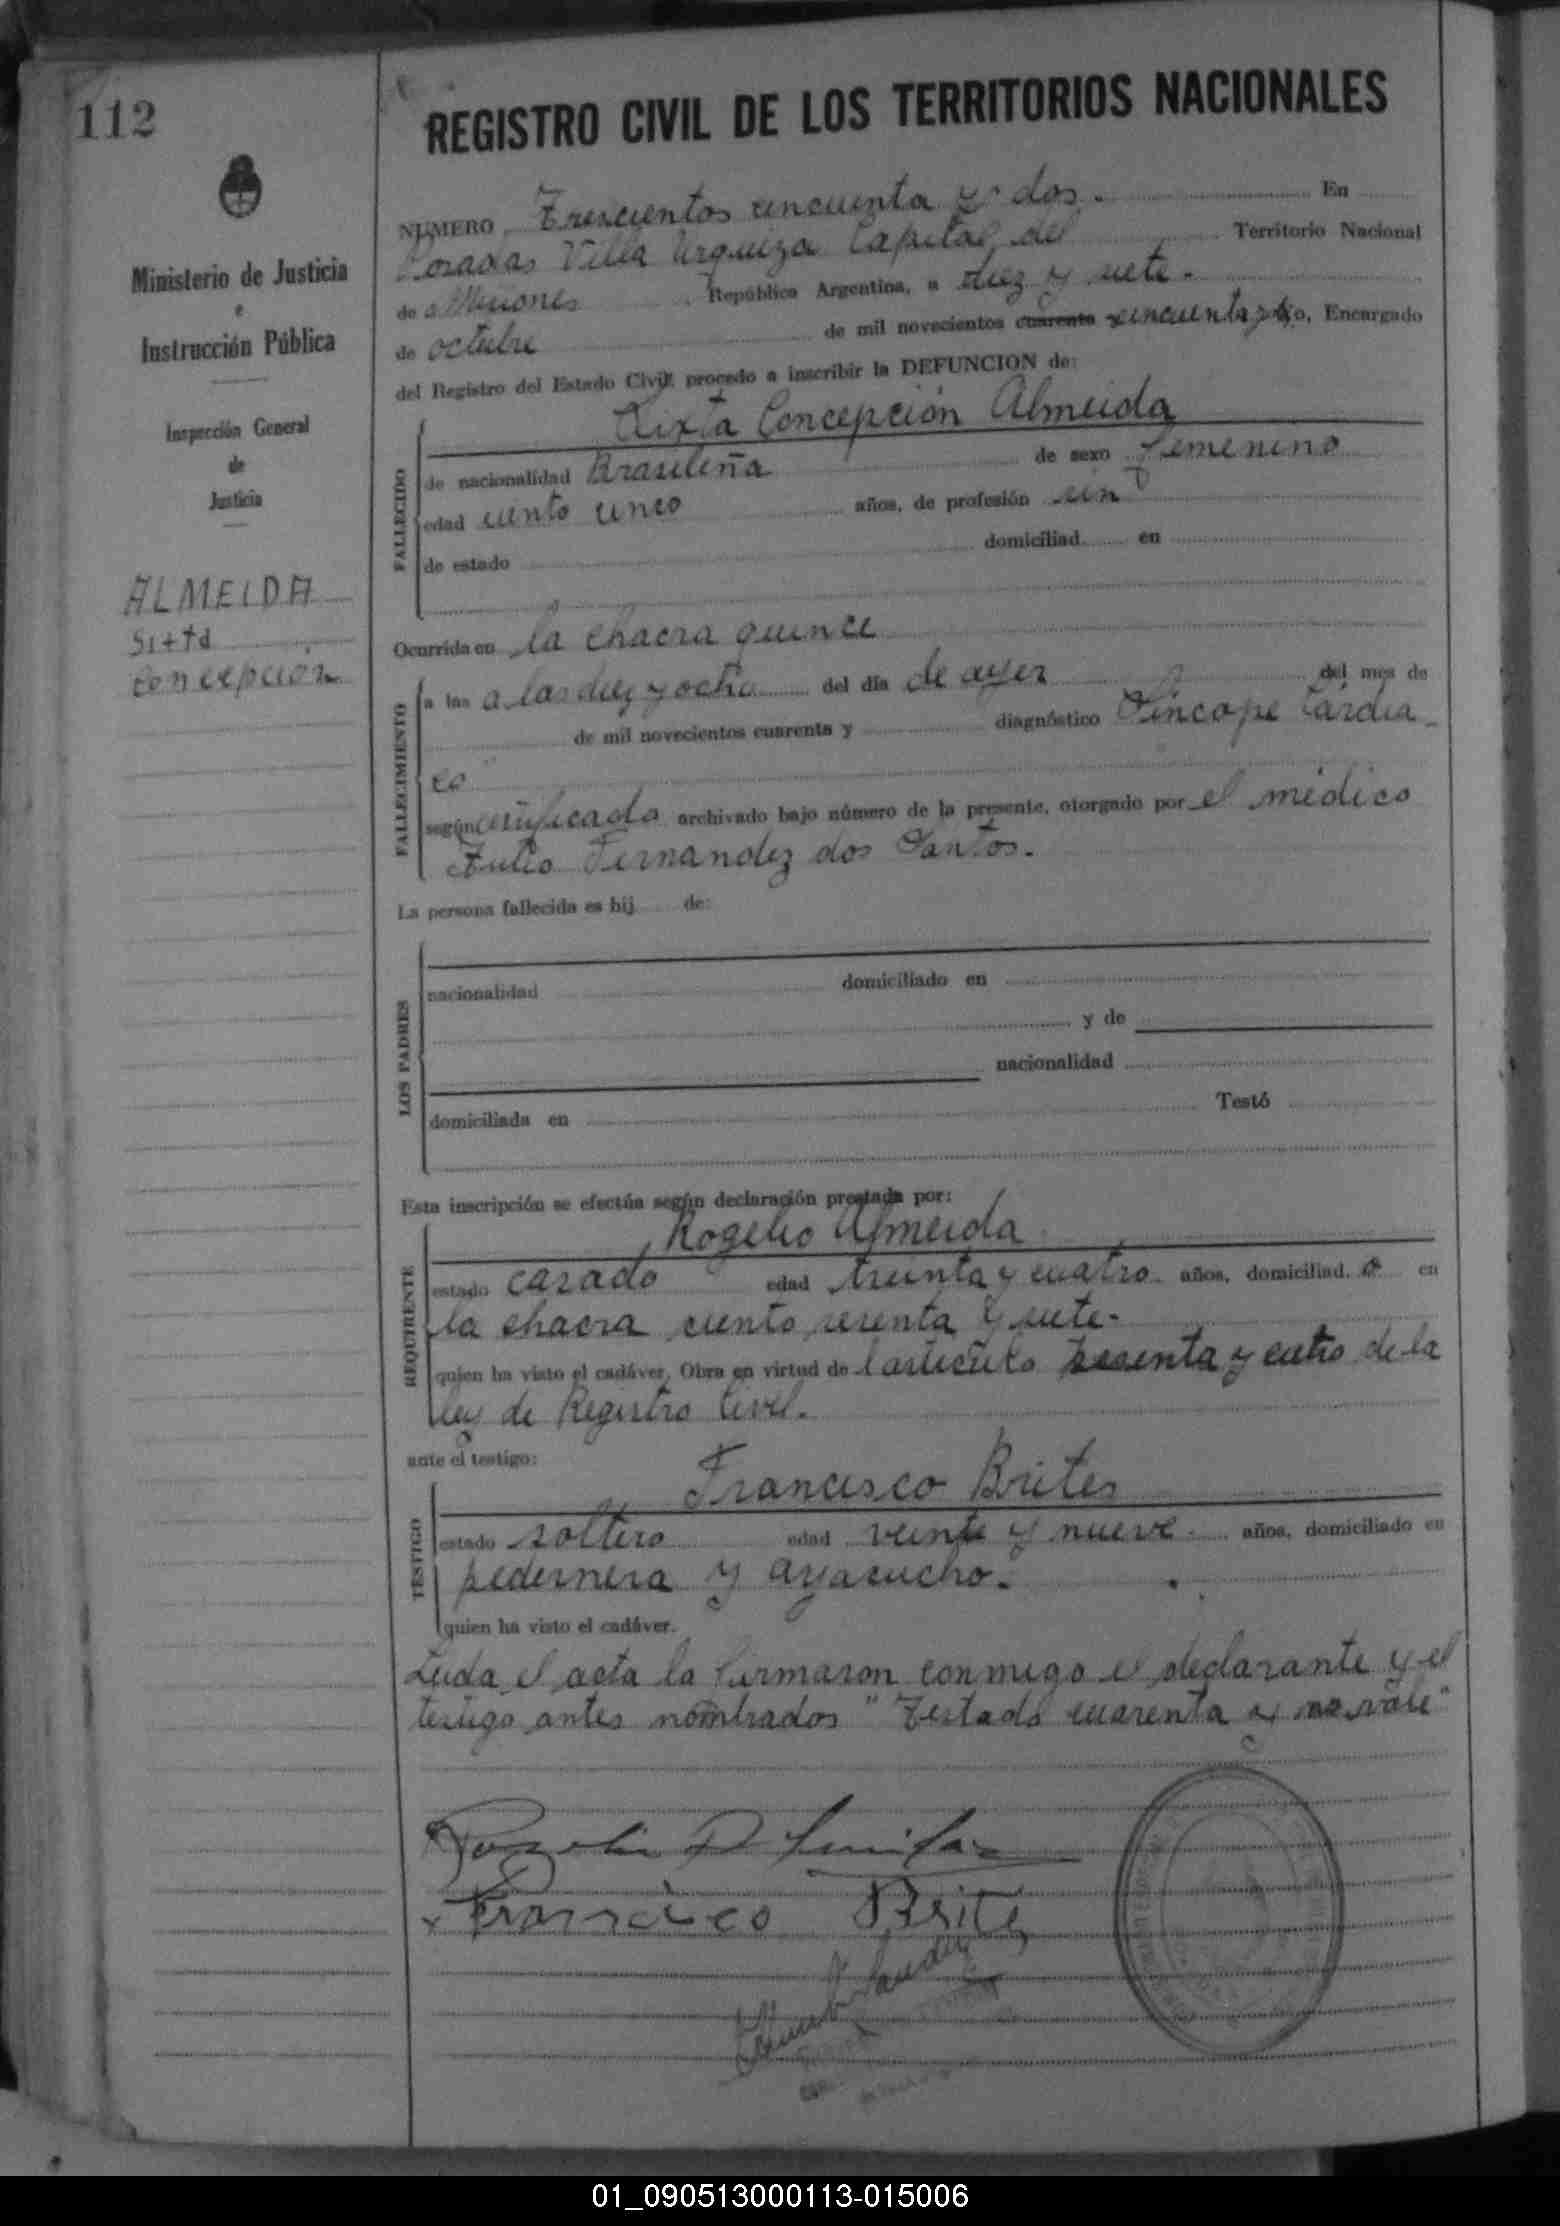 112
Ministerio de Justicia
e
Instrucción Pública
Inspección General
de
Justicia
ALMEIDA
Sixta
Concepción
REGISTRO CIVIL DE LOS TERRITORIOS NACIONALES
NUMERO Trescientos cincuenta y dos. En
Posadas Villa Urquiza Capital del Territorio Nacional
de Misiones República Argentina, a diez y siete.
de octubre de mil novecientos cuarenta cincuenta yo, Encargado
del Registro del Estado Civil procedo a inscribir la DEFUNCION de:
FALLECIDO
Sixta Concepción Almeida
de nacionalidad Brasileña de sexo femenino
edad ciento cinco años, de profesión sin
de estado domiciliad en
Ocurrida en la chacra quince
FALLECIMIENTO
a las a las diez y ocho del día de ayer del mes de
de mil novecientos cuarenta y diagnóstico Síncope Cárdia-
co"
según certificado archivado bajo número de la presente, otorgado por el médico
Julio Fernandez dos Santos.
La persona fallecida es hij de:
LOS PADRES
nacionalidad domiciliado en
y de
nacionalidad
domiciliada en Testó
Esta inscripción se efectúa según declaración prestada por:
REQUIRENTE
Rogelio Almeida
estado casado edad treinta y cuatro años, domiciliad o en
la chacra ciento sesenta y siete.
quien ha visto el cadáver. Obra en virtud de l articulo sesenta y cuatro de la
ley de Registro Civil.
ante el testigo:
TESTIGO
Francisco Brites
estado soltero edad veinte y nueve. años, domiciliado en
pedernera y ayacucho.
quien ha visto el cadáver.
Leida el acta la firmaron conmigo el declarante y el
testigo antes nombrados "Testado cuarenta y no vale"
Francisco Brites
01_090513000113-015006